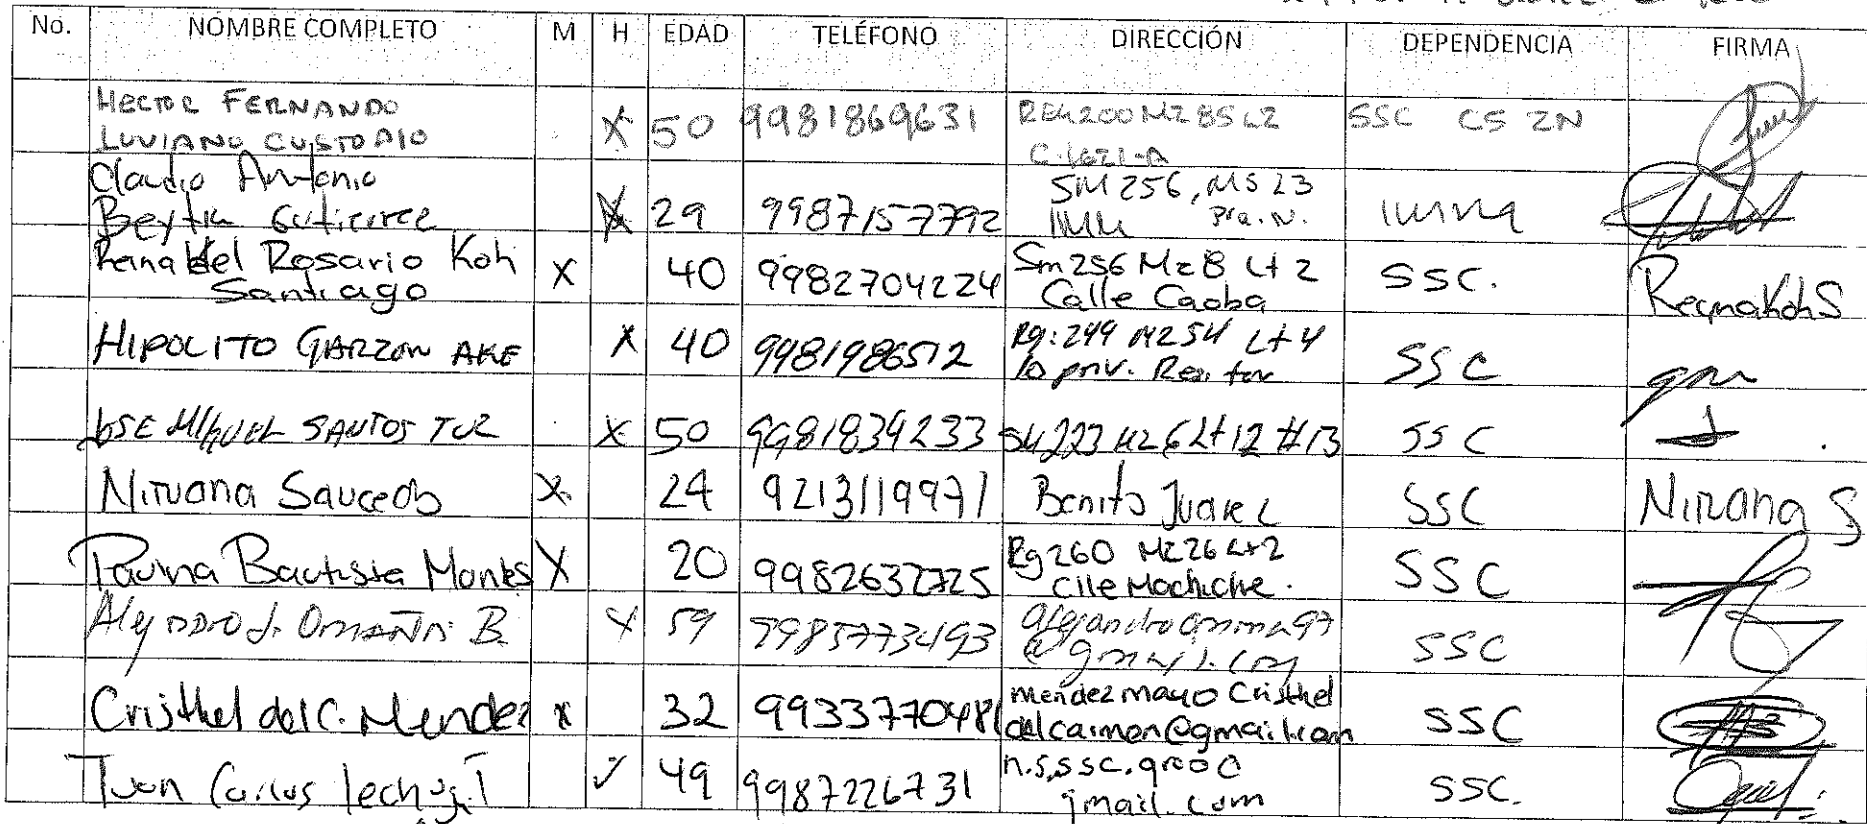 No. NOMBRE COMPLETO M H EDAD TELÉFONO DIRECCIÓN DEPENDENCIA FIRMA
HECTOR FERNANDO
LUVIANO CUSTODIO X 50 9981869631 REG 200 MZ 85 L2 SSC CS ZN
C.1621-A
Claudio Antonio
Beytia Gutierrez X 29 9987157792 SM 256, MS 23
Pra. N.
Reina del Rosario Koh
Santiago X 40 9982704224 Sm 256 Mz 8 Lt 2 SSC. ReynaKohS
Calle Caoba
HIPOLITO GARZON AKE X 40 9981986512 Rg: 249 MZ 54 Lt 4 SSC
10 priv.
JOSE MIGUEL SANTOS TUZ X 50 9981839233 SM 223 MZ 6 Lt 12 #13 SSC
Nirvana Saucedo X 24 9213119971 Benito Juarez SSC Nirvana S
Bautista Montes X 20 9982632725 Rg 260 Mz 26 Lt 2 SSC
Clle Mochiche.
J. Omaña B. X 59 9985773493 SSC
Cristhel del C. Mendez x 32 9933770481 mendezmayo Cristhel
delcarmen@gmail.com SSC
Juan Carlos 49 9987226731 n.s,ssc.qroo@
gmail.com SSC.